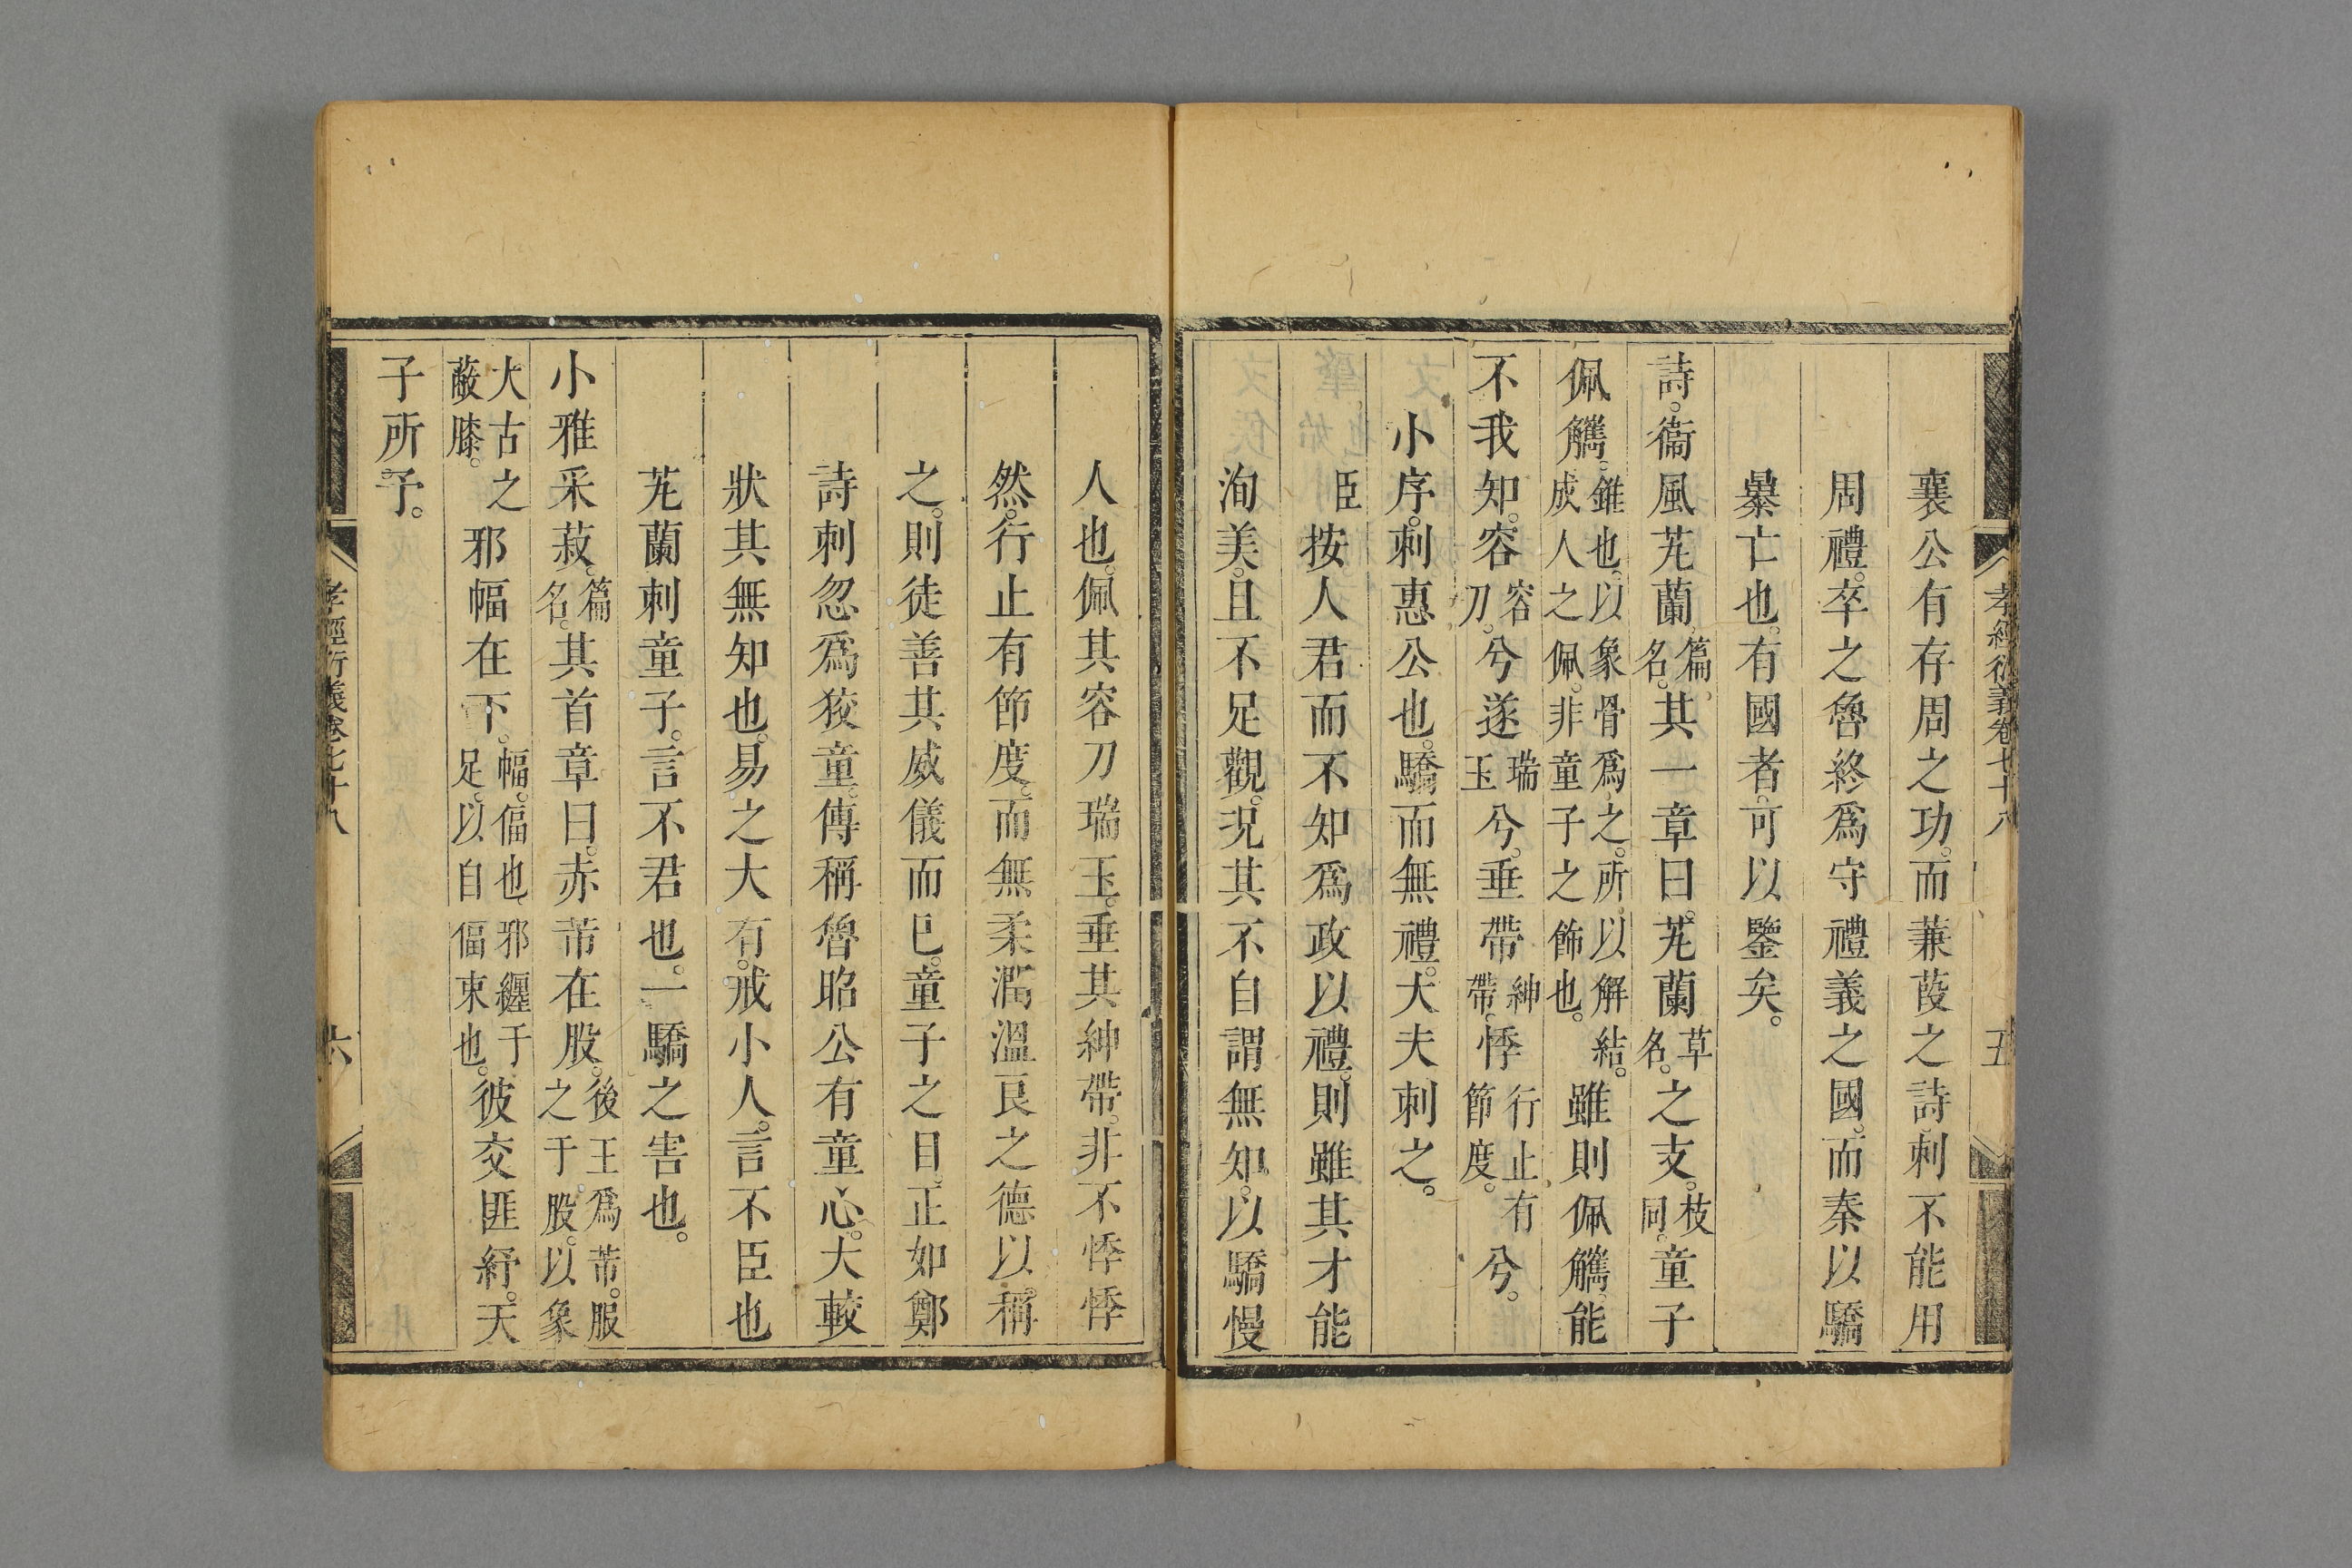 孝經衍義卷七十八
五
襄公有存周之功。而蒹葭之詩。刺不能用
周禮。卒之魯終爲守禮義之國。而秦以驕
暴亡也。有國者。可以鑒矣。
詩。衞風芄蘭。篇名。其一章曰。芄蘭草名。之支。枝同。童子
佩觿。錐也。以象骨爲之。所以解結。成人之佩。非童子之飾也。雖則佩觿。能
不我知。容容刀。兮遂瑞玉兮。垂帶紳帶。悸行止有節度。兮。
小序。刺惠公也。驕而無禮。大夫刺之。
臣按人君而不知爲政以禮。則雖其才能
洵美。且不足觀。況其不自謂無知。以驕慢
人也。佩其容刀瑞玉。垂其紳帶。非不悸悸
然。行止有節度。而無柔潤溫良之德以。稱
之。則徒善其威儀而已。童子之目。正如鄭
詩刺忽爲狡童。傳稱魯昭公有童心。大較
狀其無知也。易之大有。戒小人。言不臣也
芄蘭刺童子。言不君也。一驕之害也。
小雅采菽。篇名。其首章曰。赤芾在股。後王爲芾。服之于股。以象
大古之蔽膝。邪幅在下。幅。偪也、邪纏于足。以自偪束也。彼交匪紓。天
子所予。
孝經衍義卷七十八
六